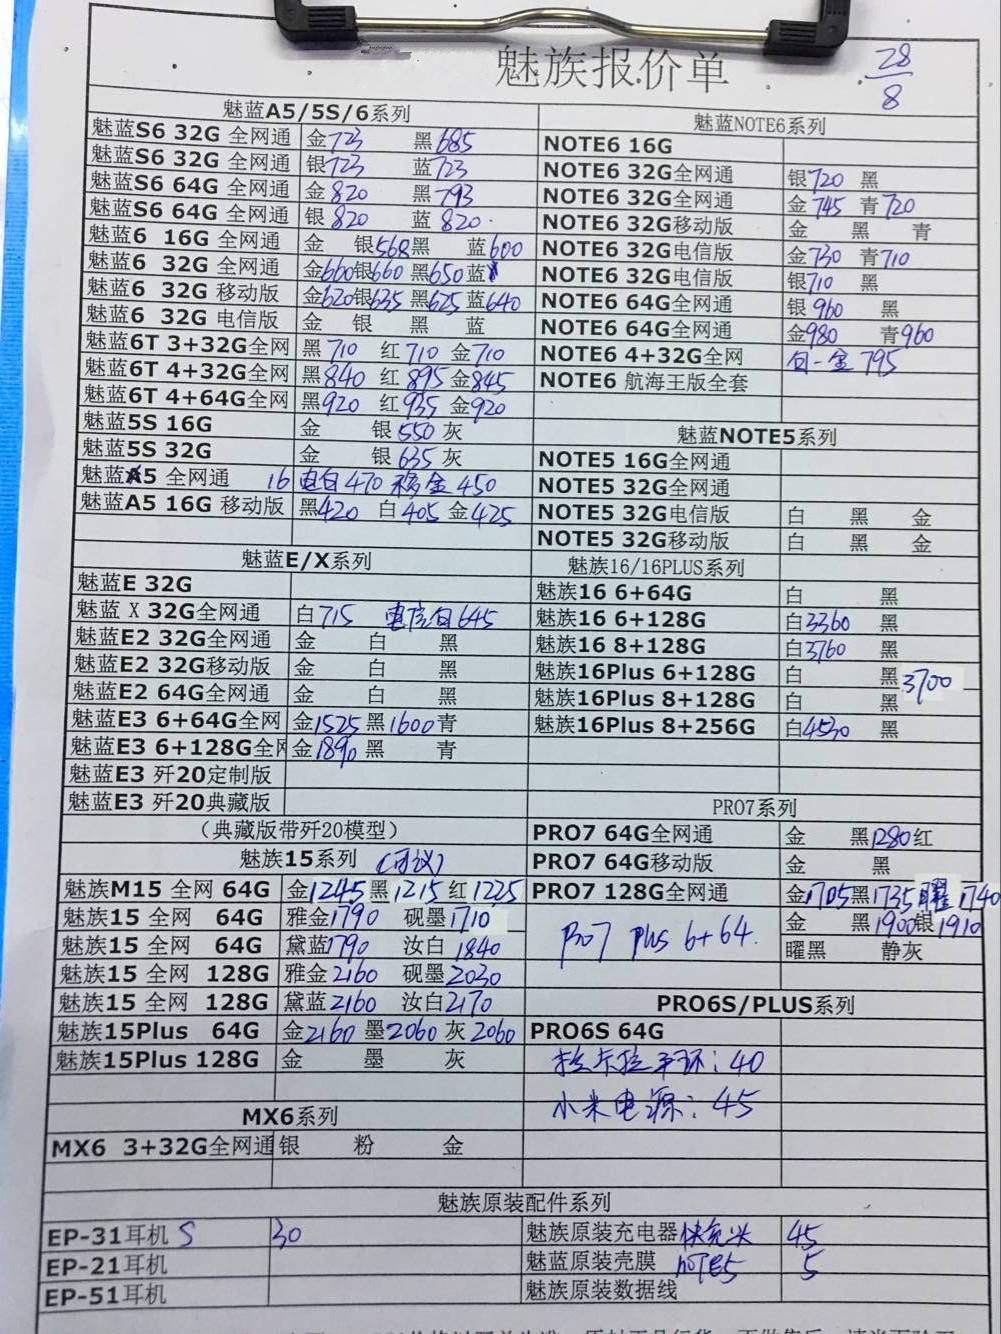 魅族报价单
28
8
魅蓝A5/5S/6系列
魅蓝S6 32G 全网通 金723 黑685
魅蓝S6 32G 全网通 银723 蓝723
魅蓝S6 64G 全网通 金820 黑793
魅蓝S6 64G 全网通 银820 蓝820
魅蓝6 16G 全网通 金 银568黑 蓝600
魅蓝6 32G 全网通 金660银660 黑650蓝
魅蓝6 32G 移动版 金620银635 黑625 蓝640
魅蓝6 32G 电信版 金 银 黑 蓝
魅蓝6T 3+32G全网 黑710 红710 金710
魅蓝6T 4+32G全网 黑840 红895 金845
魅蓝6T 4+64G全网 黑920 红935 金920
魅蓝5S 16G 金 银550 灰
魅蓝5S 32G 金 银635 灰
魅蓝A5 全网通 16 电白470 移金450
魅蓝A5 16G 移动版 黑420 白405 金425
魅蓝E/X系列
魅蓝E 32G
魅蓝 X 32G全网通 白715 电信白645
魅蓝E2 32G全网通 金 白 黑
魅蓝E2 32G移动版 金 白 黑
魅蓝E2 64G全网通 金 白 黑
魅蓝E3 6+64G全网 金1525 黑1600青
魅蓝E3 6+128G全网 金1890 黑 青
魅蓝E3 歼20定制版
魅蓝E3 歼20典藏版
（典藏版带歼20模型）
魅族15系列 (可议)
魅族M15 全网 64G 金1245 黑1215 红1225
魅族15 全网 64G 雅金1790 砚墨1710
魅族15 全网 64G 黛蓝1790 汝白1840
魅族15 全网 128G 雅金2160 砚墨2030
魅族15 全网 128G 黛蓝2160 汝白2170
魅族15Plus 64G 金2160 墨2060 灰2060
魅族15Plus 128G 金 墨 灰
MX6系列
MX6 3+32G全网通 银 粉 金
魅蓝NOTE6系列
NOTE6 16G
NOTE6 32G全网通 银720 黑
NOTE6 32G全网通 金745 青720
NOTE6 32G移动版 金 黑 青
NOTE6 32G电信版 金730 青710
NOTE6 32G电信版 银710 黑
NOTE6 64G全网通 银960 黑
NOTE6 64G全网通 金980 青960
NOTE6 4+32G全网 金795
NOTE6 航海王版全套
魅蓝NOTE5系列
NOTE5 16G全网通
NOTE5 32G全网通
NOTE5 32G电信版 白 黑 金
NOTE5 32G移动版 白 黑 金
魅族16/16PLUS系列
魅族16 6+64G 白 黑
魅族16 6+128G 白3360 黑
魅族16 8+128G 白3760 黑
魅族16Plus 6+128G 白 黑3700
魅族16Plus 8+128G 白 黑
魅族16Plus 8+256G 白4530 黑
PRO7系列
PRO7 64G全网通 金 黑1280红
PRO7 64G移动版 金 黑
PRO7 128G全网通 金1705黑1735曜1740
Pro7 plus 6+64. 金 黑1900银1910
曜黑 静灰
PRO6S/PLUS系列
PRO6S 64G
拉卡拉手环：40
小米电源：45
魅族原装配件系列
EP-31耳机 S 30
EP-21耳机
EP-51耳机
魅族原装充电器快充头 45
魅蓝原装壳膜 NOTE5 5
魅族原装数据线